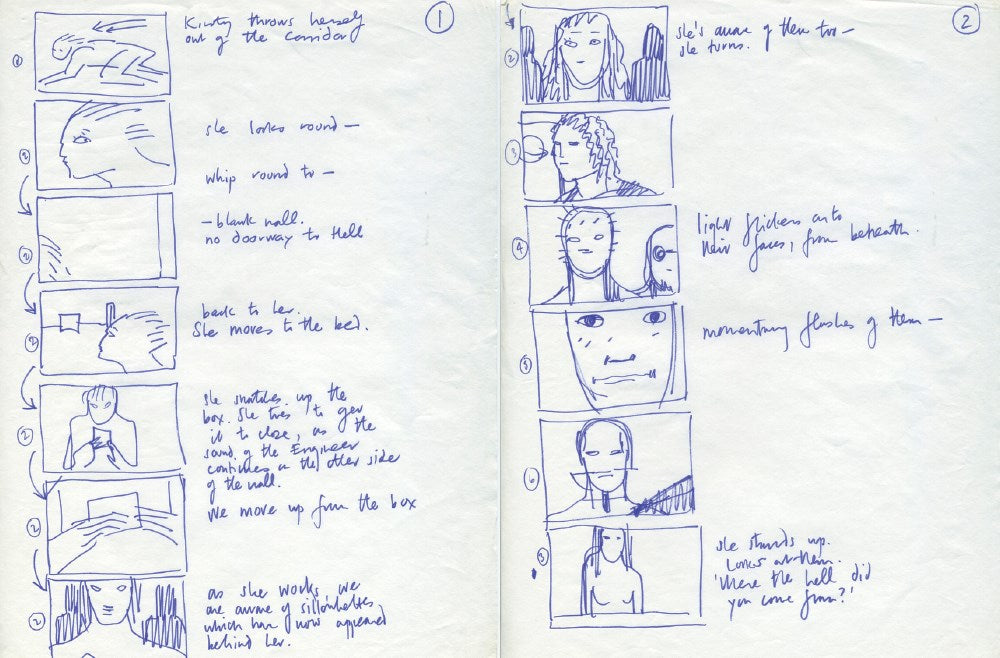 1
Kirsty throws herself
out of the corridor
2
she looks round —
whip round to —
2
— blank wall.
no doorway to Hell
2
back to her.
She moves to the bed.
2
she snatches up the
box. She tries to get
it to close, as the
sound of the Engineer
continues on the other side
of the wall.
2
We move up from the box
2
as she works, we
are aware of sillouhettes
which have now appeared
behind her.
2
2
she's aware of them too —
she turns.
3
4
light flickers onto
their faces, from beneath.
5
momentary flashes of them —
6
she stands up.
Looks at them.
'Where the hell did
you come from?'